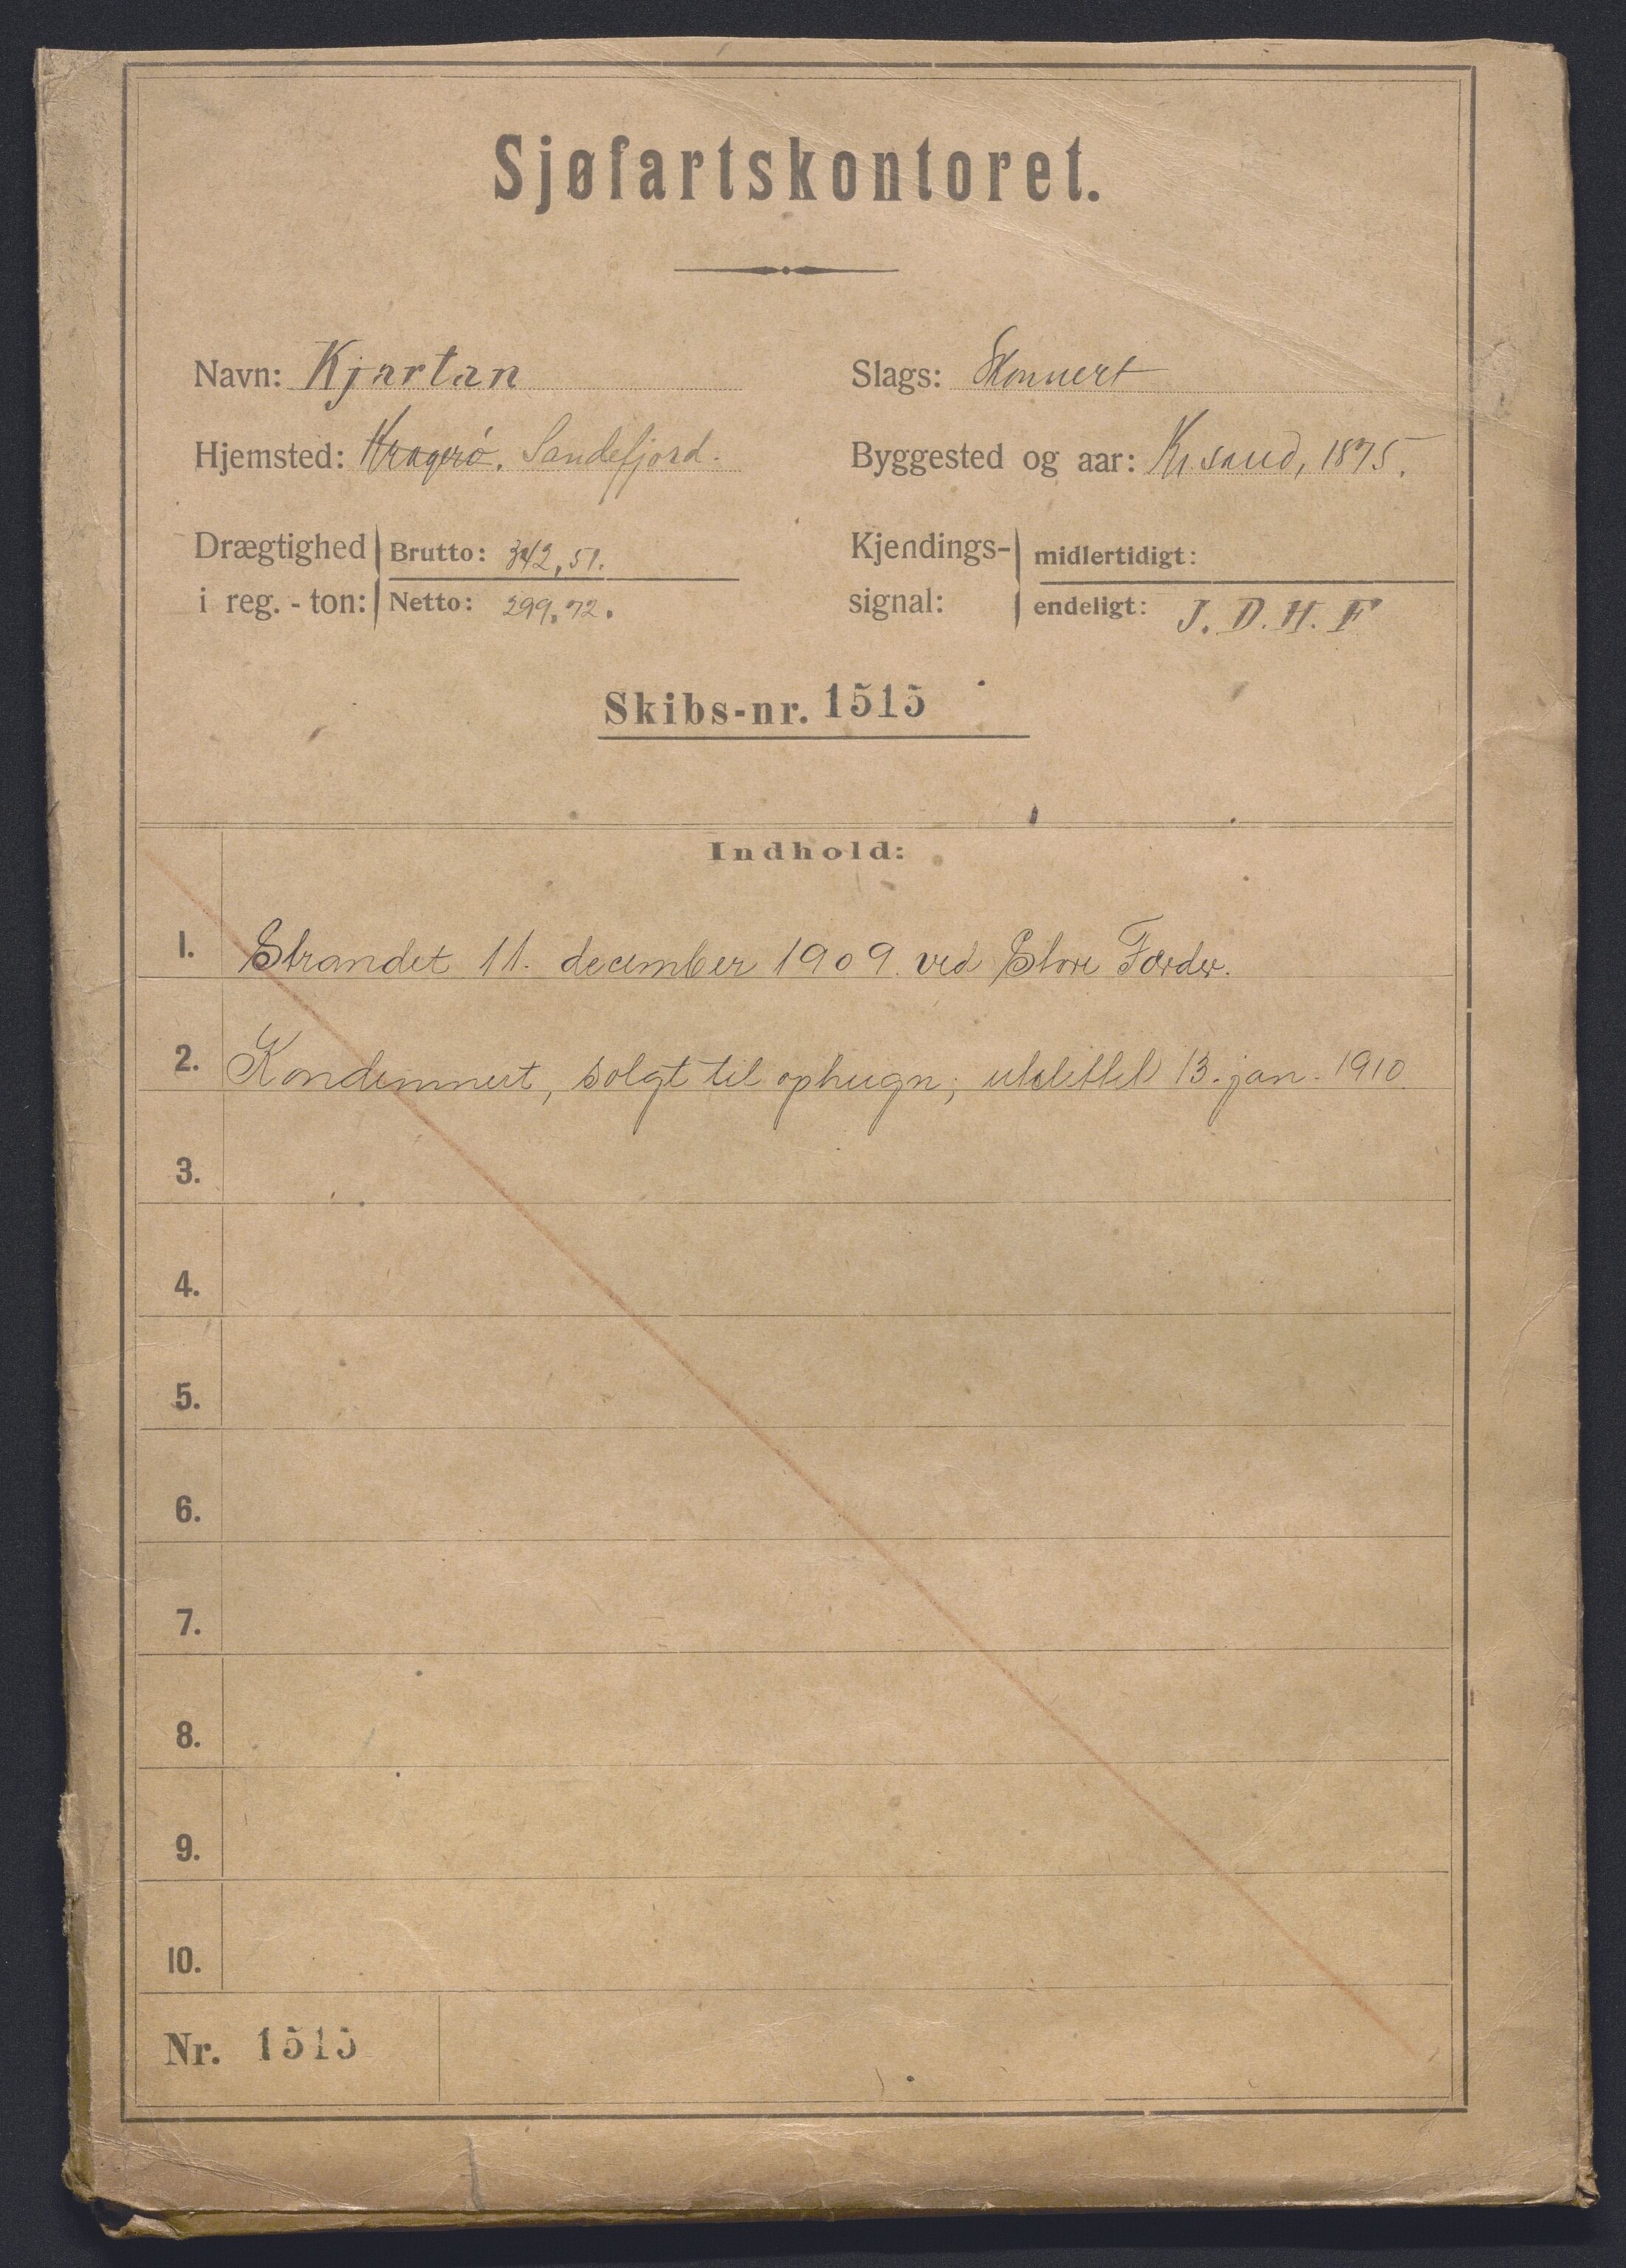 Sjøfartskontoret.
Navn: Kjartan
Slags: Skonnert
Hjemsted: Kragerö. Sandefjord.
Byggested og aar: Kr.sand, 1875.
Drægtighed i reg.-ton: Brutto: 342,51.
Netto: 299,72.
Kjendings-signal: midlertidigt:
endeligt: J. D. H. F
Skibs-nr. 1515
Indhold:
1. Strandet 11. december 1909 ved Store Færder.
2. Kondemnert, solgt til ophugn; utslettet 13. jan. 1910.
3.
4.
5.
6.
7.
8.
9.
10.
Nr. 1515